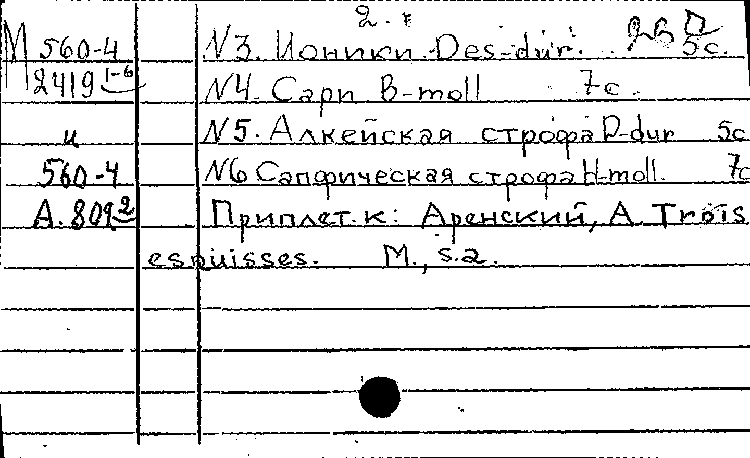 2.
М 560-4 N3. Ионики Des-dur. 5с.
2419 1-6 N4. Сари B-moll 7с.
и N5. Алкейская строфа D-dur 5с
560-4 N6 Сапфическая строфа H-moll. 7с
А. 809 2 Приплет. к: Аренский, А. Trois
esquisses. М., s.a.